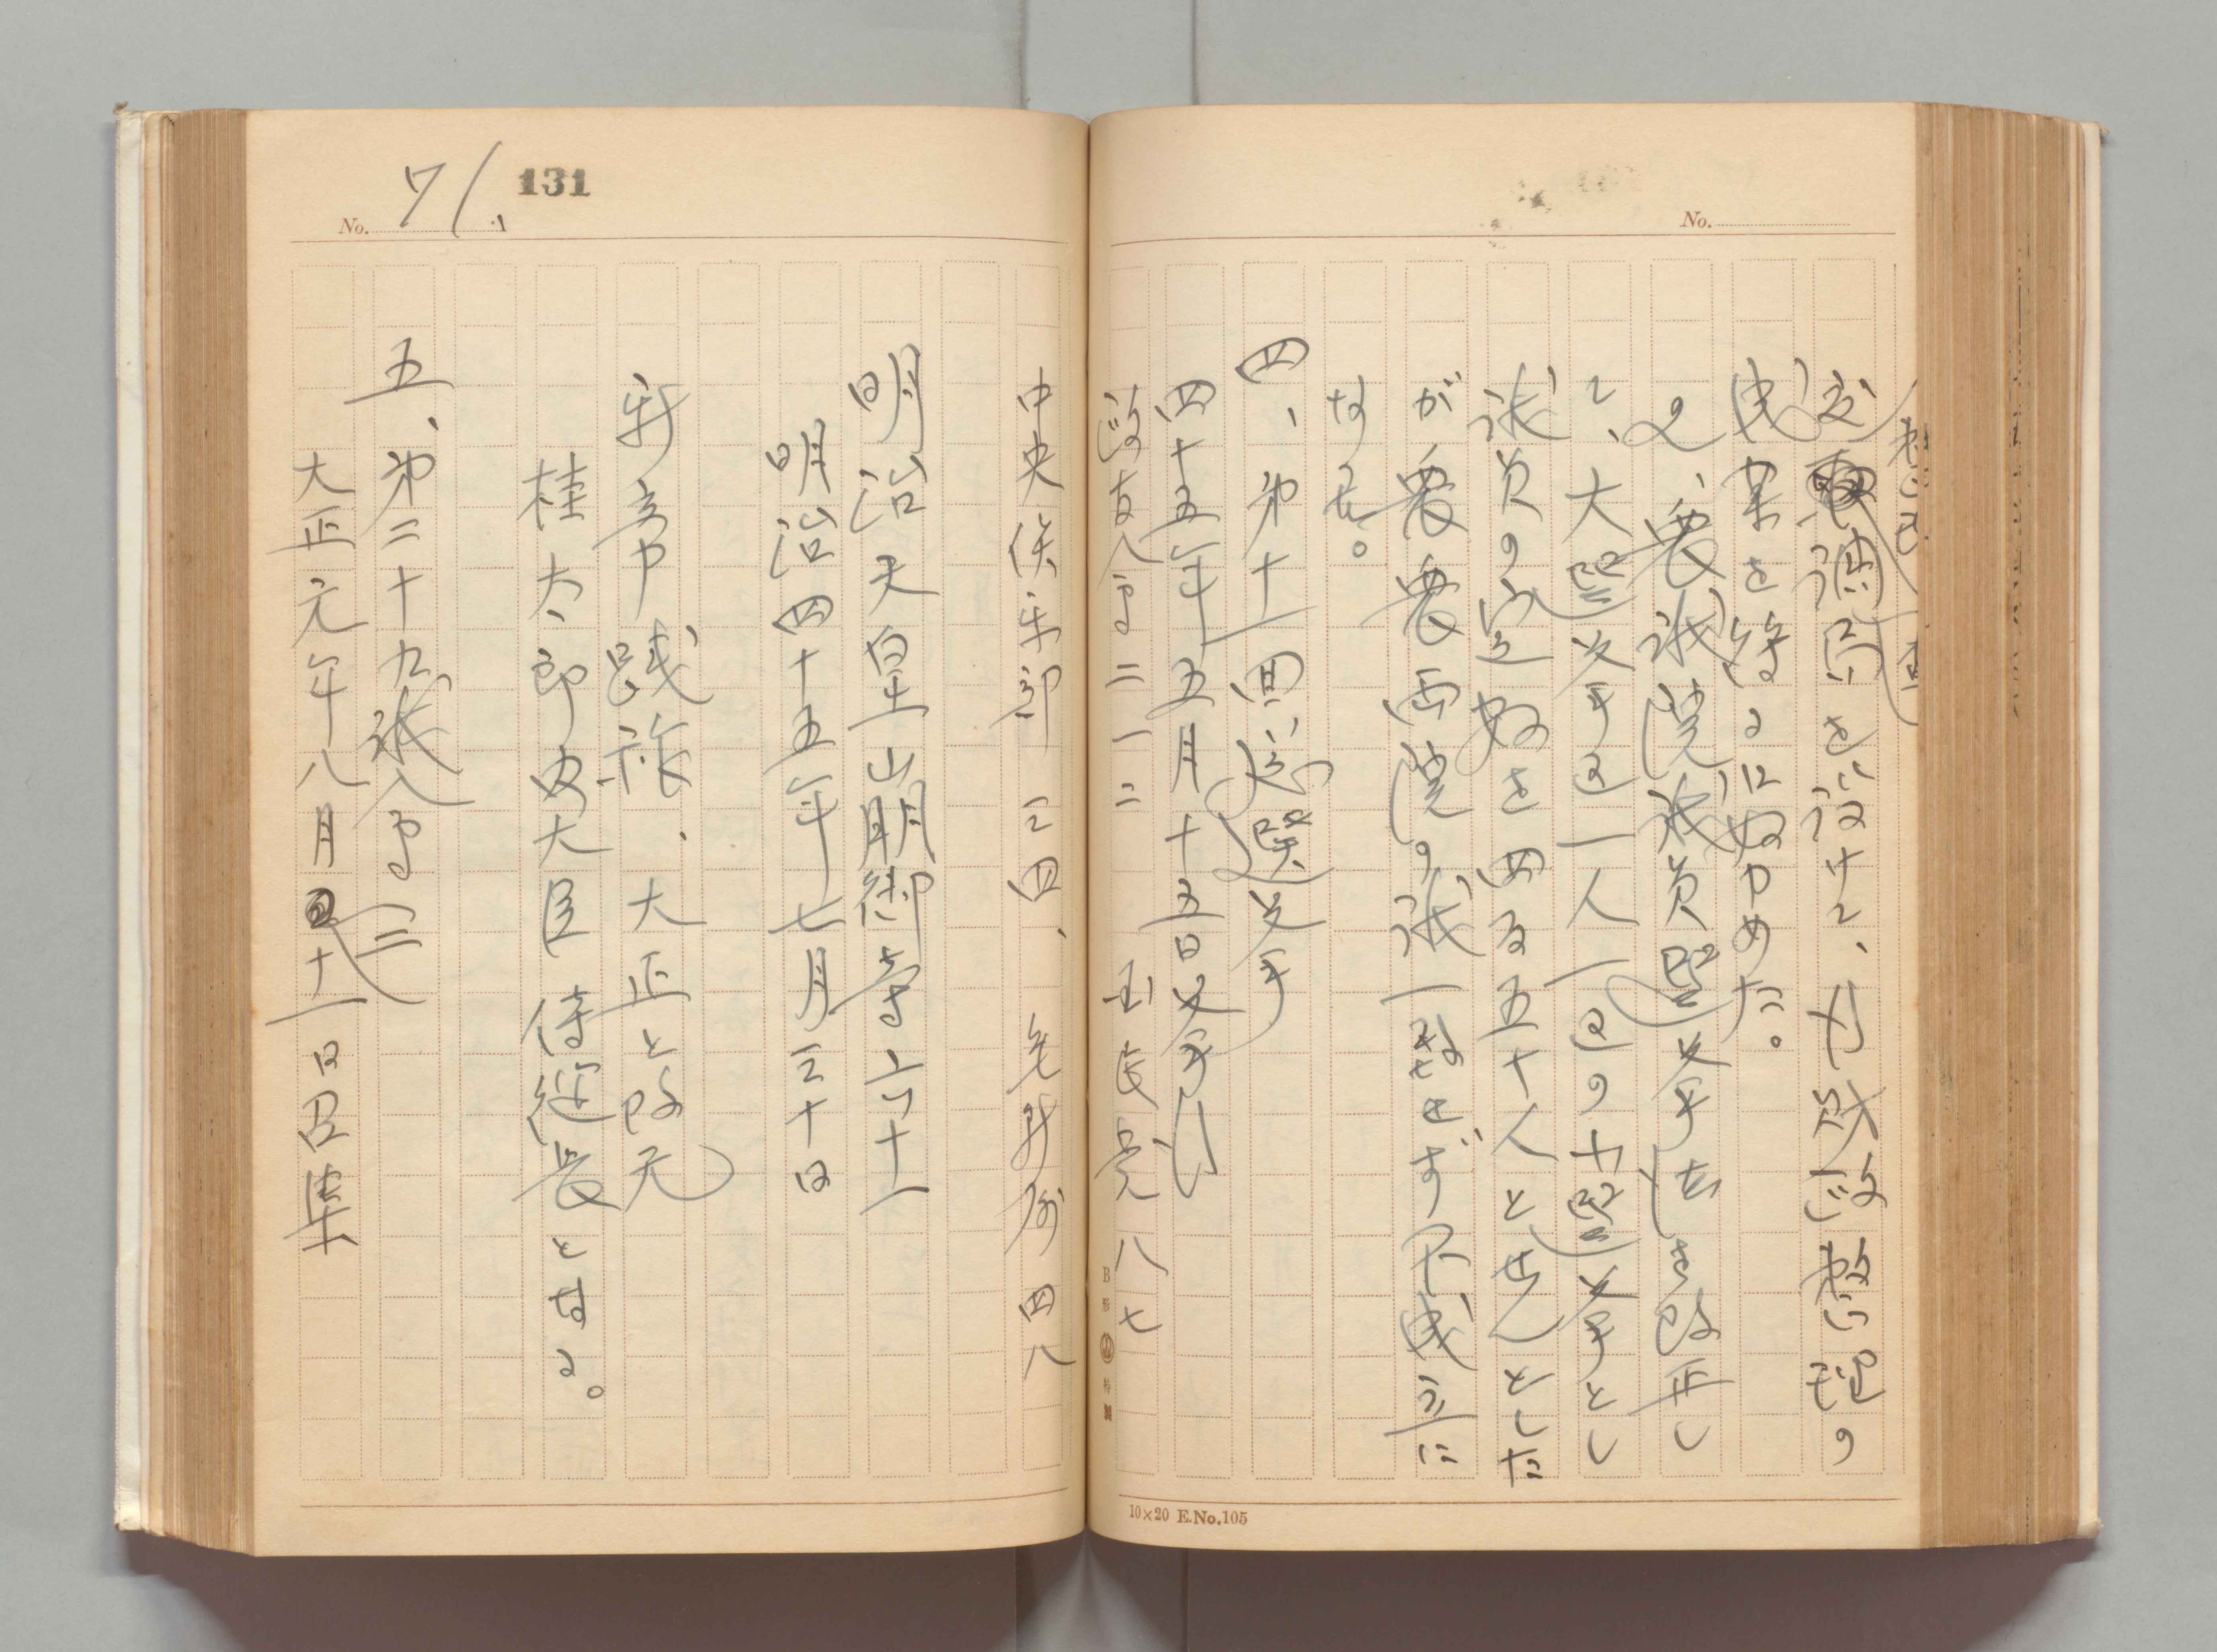 調局を設けて、行財政整理の
成案を得るに努めた。
又、衆議院議員選挙法を改正し
て、大選挙区一人一区の小選挙とし
議員の定数を四百五十人とせんとした
が衆
両院の議一致せず不成立に
なる。
四、第十一回総選挙
四十五年五月十五日挙行
政友会 二一二 国民党 八七
B形 特製
10×20 E.No.105
No.
No. 71.
131
中央倶楽部 三四、 無所属 四八
明治天皇崩御 寿六十一
明治四十五年七月三十日
新帝践祚、大正と改元
桂太郎内大臣侍従長となる。
五、第二十九議会
大正元年八月
十一日召集